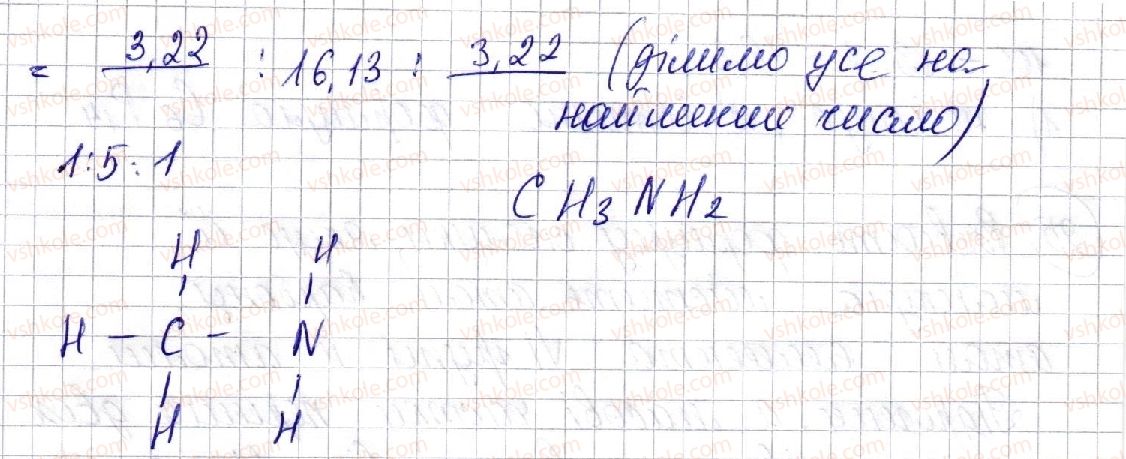 = 3,22 : 16,13 : 3,22 (ділимо усе на
найменше число)
1:5:1
CH3NH2
H H
H - C - N
H H